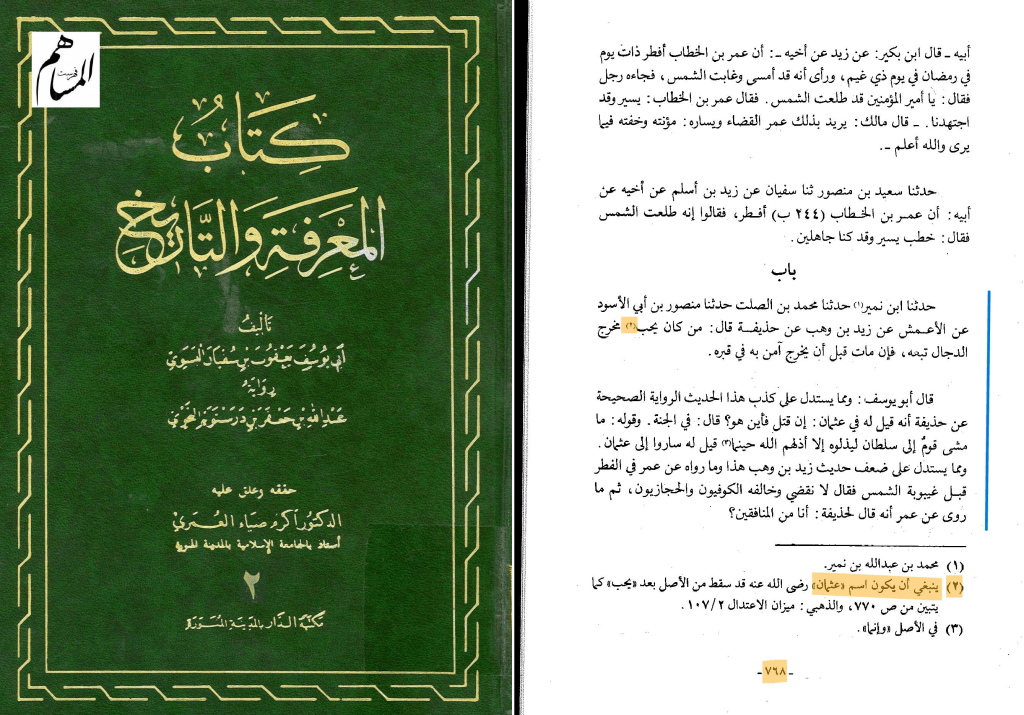 فهرست
المساهم
كتاب
المعرفة والتاريخ
تأليف
أبي يوسف يعقوب بن سفيان الفسوي
رواية
عبد الله بن جعفر بن درستويه النحوي
حققه وعلق عليه
الدكتور أكرم ضياء العمري
أستاذ بالجامعة الإسلامية بالمدينة المنورة
٢
مكتبة الدار بالمدينة المنورة
أبيه ـ قال ابن بكير: عن زيد عن أخيه ـ: أن عمر بن الخطاب أفطر ذات يوم
في رمضان في يوم ذي غيم، ورأى أنه قد أمسى وغابت الشمس، فجاءه رجل
فقال: يا أمير المؤمنين قد طلعت الشمس. فقال عمر بن الخطاب: يسير وقد
اجتهدنا. ـ قال مالك: يريد بذلك عمر القضاء ويساره: مؤنته وخفته فيما
يرى والله أعلم ـ.
حدثنا سعيد بن منصور ثنا سفيان عن زيد بن أسلم عن أخيه عن
أبيه: أن عمر بن الخطاب (٢٤٤ ب) أفطر، فقالوا إنه طلعت الشمس
فقال: خطب يسير وقد كنا جاهلين.
باب
حدثنا ابن نمير(١) حدثنا محمد بن الصلت حدثنا منصور بن أبي الأسود
عن الأعمش عن زيد بن وهب عن حذيفة قال: من كان يحب(٢) مخرج
الدجال تبعه، فإن مات قبل أن يخرج آمن به في قبره.
قال أبو يوسف: ومما يستدل على كذب هذا الحديث الرواية الصحيحة
عن حذيفة أنه قيل له في عثمان: إن قتل فأين هو؟ قال: في الجنة. وقوله: ما
مشى قومٌ إلى سلطان ليذلوه إلا أذلهم الله حينما(٣) قيل له ساروا إلى عثمان.
ومما يستدل على ضعف حديث زيد بن وهب هذا وما رواه عن عمر في الفطر
قبل غيبوبة الشمس فقال لا نقضي وخالفه الكوفيون والحجازيون، ثم ما
روى عن عمر أنه قال لحذيفة: أنا من المنافقين؟
(١) محمد بن عبدالله بن نمير.
(٢) ينبغي أن يكون اسم «عثمان» رضى الله عنه قد سقط من الأصل بعد «يحب» كما
يتبين من ص ٧٧٠، والذهبي: ميزان الاعتدال ١٠٧/٢.
(٣) في الأصل «وإنما».
ـ ٧٦٨ ـ